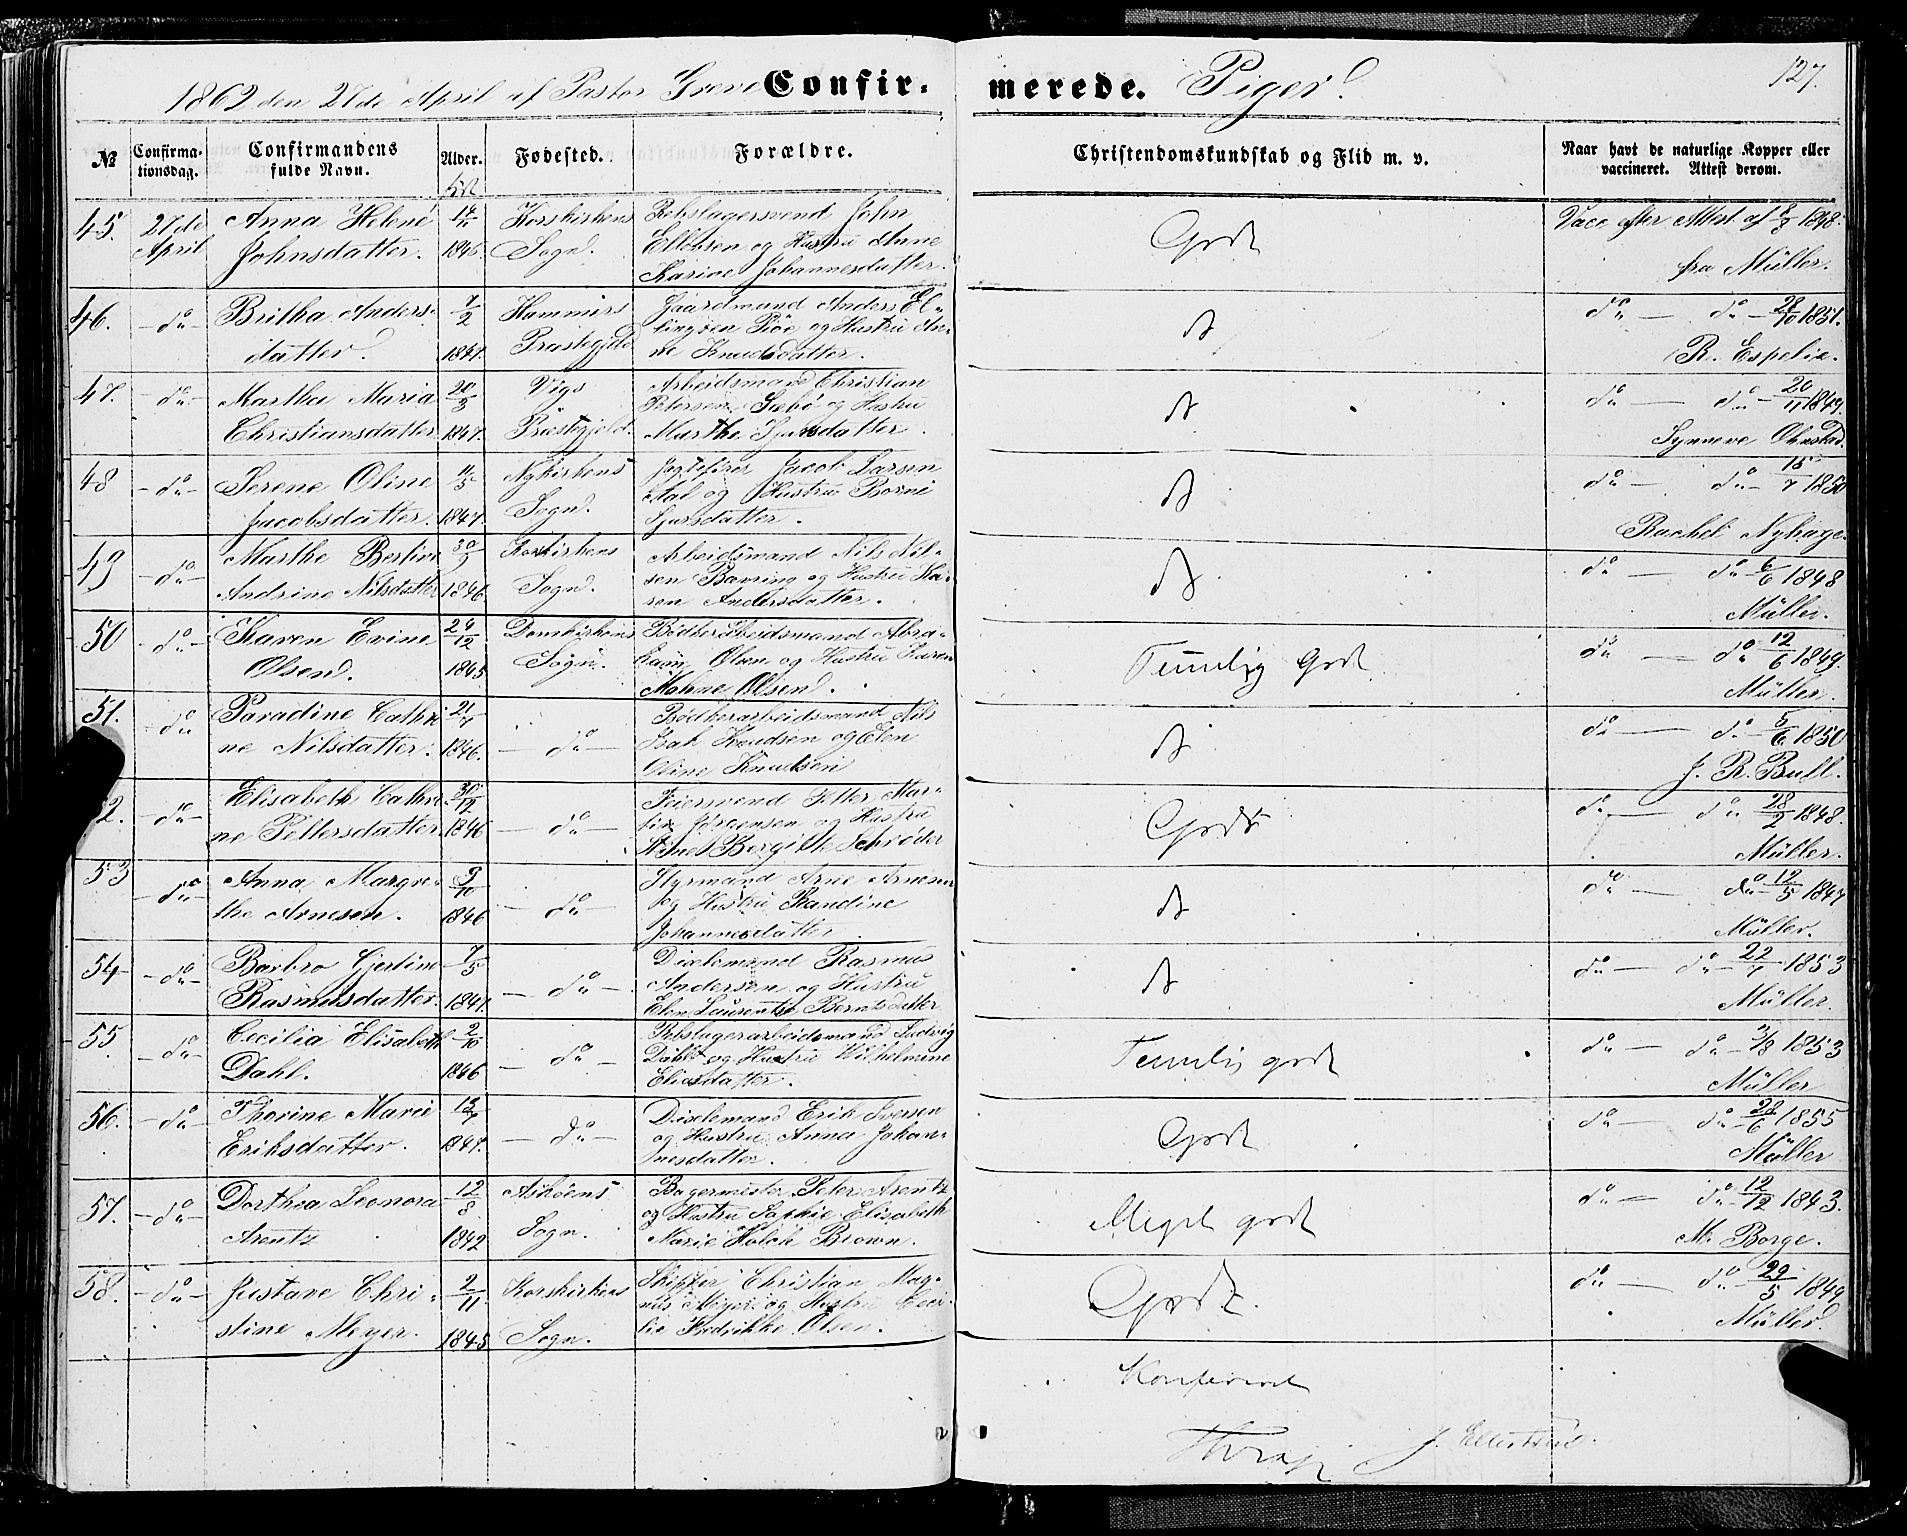 1862 den 27de April af Pastor Greve Confirmerede. Piger. 127.
№ Confirmationsdag. Confirmandens fulde Navn. Alder. Fødested. Forældre. Christendomskundskab og Flid m. v. Naar havt de naturlige Kopper eller vaccineret. Attest derom.
45. 27de Anna Helene 14/ Korskirkens Rebslagersvend John Godt Vacc. efter Attest af 8/3 1848.
April Johnsdatter. 1846. Sogn. og Hustru Anne fra Müller.
Karine Johannesdatter.
46. do Britha Anders- 7/2 Hammers Gaardmand Anders El- do do 28/10 1851.
datter. 1847. Præstegjeld lingsen og Hustru An- R. Espelie.
ne Knudsdatter.
47. do Martha Maria 20/3 Vigs Arbeidsmand Christian do do 20/11 1849.
Christiansdatter 1847. Præstegjeld. Petersen Sæbø og Hustru Synneve Ohnstad.
Marthe Sjursdatter.
48 do Serene Oline 11/5 Nykirkens Jacob Larsen do do 15/7 1850
Jacobsdatter. 1847. Sogn. og Hustru Sjursdatter. Rachel Nyhage.
49 do Marthe Bertine 30/ Korskirkens Arbeidsmand Nils Nil- do do 6/6 1848
Andrine Nilsdatter 1846. Sogn. sen og Hustru Ka- Müller.
ren Andersdatter.
50 do Karen Evine 24/12 Domkirkens Bødkerarbeidsmand Abra- Temlig Godt do do 12/6 1849.
Olsen. 1845 Sogn. ham Olsen og Hustru Karen Müller.
Olsen.
51. do Paradine Cathri 21/7 do Bødkerarbeidsmand Nils do do 5/6 1850
ne Nilsdatter. 1846. Isak Knudsen og Elen J. R. Bull.
Oline Knudsen
52. do Elisabeth Cathri 30/12 do Feiersvend Petter Mar- Godt do do 28/2 1848.
ne Pettersdatter 1846 tin Jörgensen og Hustru Müller.
Bergitte Schrøder
53 do Anna Margre- 9/10 do Styrmand Arne Arnesen do do 12/5 1847
the Arnesen. 1846 og Hustru Randine Müller.
Johannesdatter
54 do Barbro Gjertine 7/5 do Dixlemand Rasmus do do 22/7 1853
Rasmusdatter. 1847. Andersen og Hustru Müller.
Elen Laurentse Berntsdatter
55 do Cecilia Elisabeth 2/10 do Rebslagerarbeidsmand Ludvig Temlig godt do do 3/8 1853
Dahl. 1846 Dahl og Hustru Wilhelmine Müller
Eliasdatter.
56. do Thorine Marie 12/7 do Dixlemand Erik Iversen Godt do do 28/6 1855
Eriksdatter. 1847. og Hustru Anna Johan- Müller
nesdatter.
57. do Dorthea Leonora 12/8 Askøens Bagermester Peter Arentz Meget godt do do 12/12 1843.
Arentz 1842 Sogn. og Hustru Sophie Elisabeth M. Borge.
Marie Holck Brown.
58. do Gustave Chri- 2/11. Korskirkens Skipper Christian Mag- Godt. do do 29/5 1849
stine Meyer. 1845 Sogn. nus Meyer og Hustru Ceci- Müller.
lie Fredrikke Olsen.
Konfereret
J. Ellertsen.